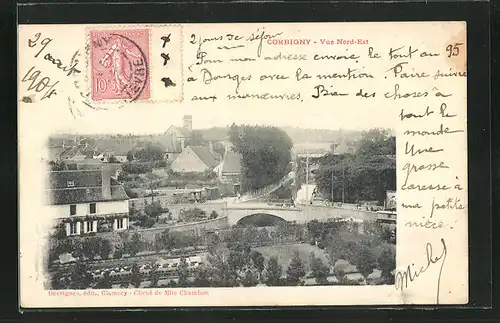 CORBIGNY - Vue Nord-Est
29
août
190
10
2 jours de séjour
Pour mon adresse envoie, le tout au 95
à Donges avec la mention. Faire suivre
aux manœuvres. Bien des choses à
tout le
monde
Une
grosse
caresse à
ma petite
nièce.
Michel
Desvignes, édit., Clamecy - Cliché de Mlle Chambon